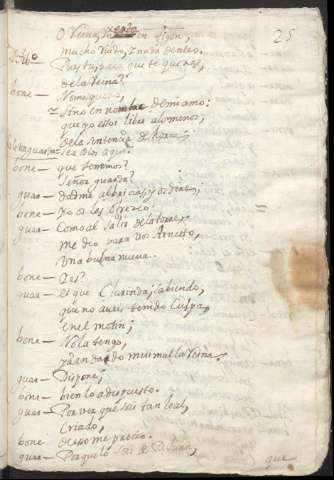 25
O Reina, en
mucho Ruido, y nada dentro.
Pues tu, para que te quexas,
de la Reina?
bone— No me quexo,
sino en nombre de mi amo:
que yo estoi libre alomenos,
de la sentencia de
sea Dios aqui.
bone— que tenemos?
señor guarda?
guar— dadme albricias, y os dire,
bone— yo os las ofrezco.
guar— Como al salir de la torre,
me dio para vos Arnesto,
Una buena nueva.
bone— Y es?
guar— es que Clarinda, sabiendo,
que no aveis tenido Culpa,
en el motin;
bone— No la tengo,
mui mal la Reina.
guar— Dispone;
bone— bien lo a dispuesto.
guar— Por ver que sois tan leal,
Criado,
bone de eso me precio.
guar— Para que lo seais de
que